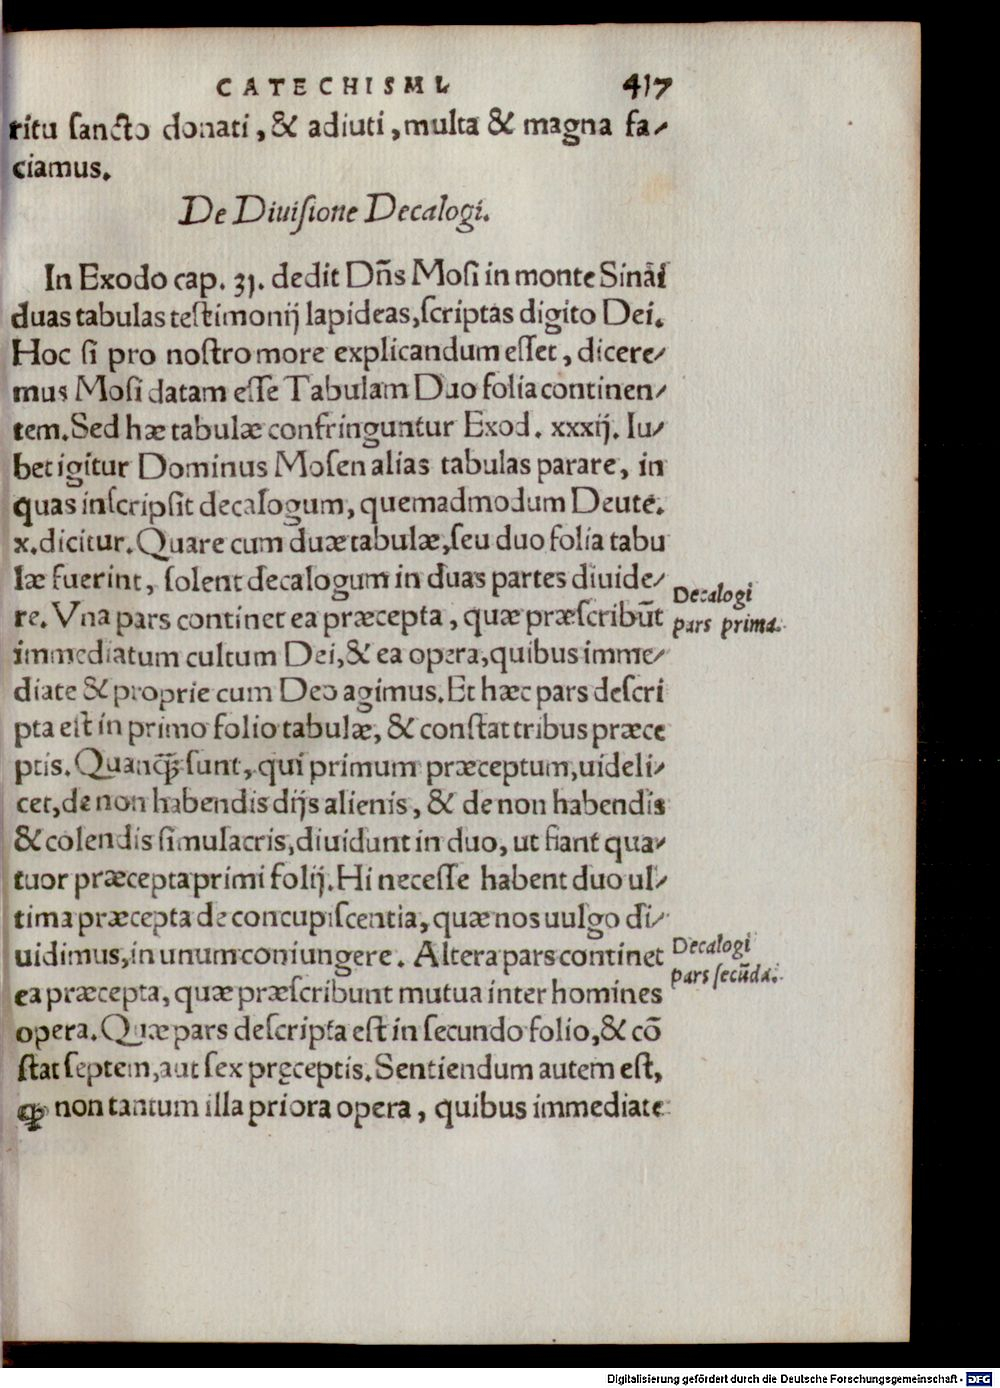 CATECHISMI. 417
ritu sancto donati, & adiuti, multa & magna fa⸗
ciamus.
De Diuisione Decalogi.
In Exodo cap. 31. dedit Dñs Mosi in monte Sinai
duas tabulas testimonij lapideas, scriptas digito Dei.
Hoc si pro nostro more explicandum esset, dicere⸗
mus Mosi datam esse Tabulam Duo folia continen⸗
tem. Sed hæ tabulæ confringuntur Exod. xxxij. Iu⸗
bet igitur Dominus Mosen alias tabulas parare, in
quas inscripsit decalogum, quemadmodum Deute.
x. dicitur. Quare cum duæ tabulæ, seu duo folia tabu
læ fuerint, solent decalogum in duas partes diuide⸗
re. Vna pars continet ea præcepta, quæ præscribūt
Decalogi
pars prima.
immediatum cultum Dei, & ea opera, quibus imme⸗
diate & proprie cum Deo agimus. Et hæc pars descri
pta est in primo folio tabulæ, & constat tribus præce
ptis. Quanꝙ̃ sunt, qui primum præceptum, uideli⸗
cet, de non habendis dijs alienis, & de non habendis
& colendis simulacris, diuidunt in duo, ut fiant qua⸗
tuor præcepta primi folij. Hi necesse habent duo ul⸗
tima præcepta de concupiscentia, quæ nos uulgo di⸗
uidimus, in unum coniungere. Altera pars continet
Decalogi
pars secūda.
ea præcepta, quæ præscribunt mutua inter homines
opera. Quæ pars descripta est in secundo folio, & cō
stat septem, aut sex pręceptis. Sentiendum autem est,
ꝙ non tantum illa priora opera, quibus immediate
Digitalisierung gefördert durch die Deutsche Forschungsgemeinschaft - DFG